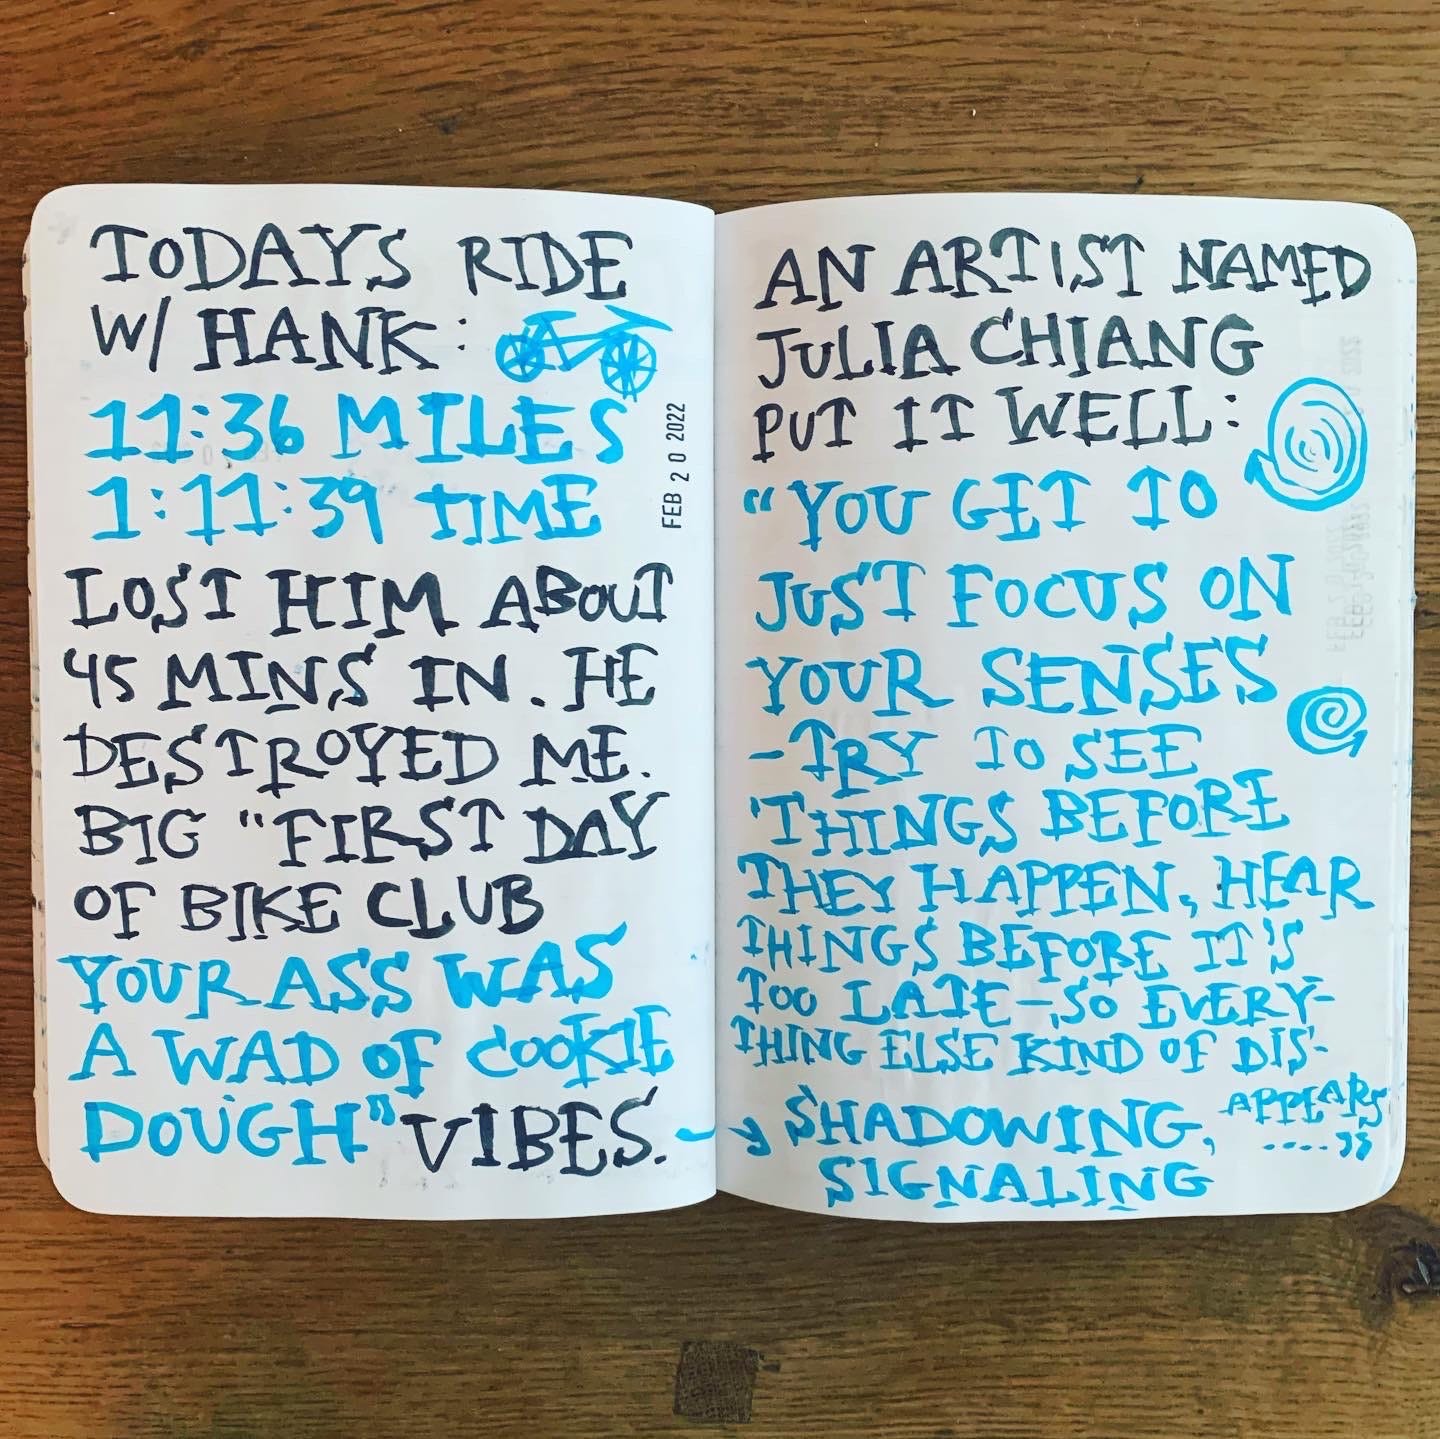 TODAYS RIDE
W/ HANK:
11:36 MILES
1:11:39 TIME
FEB 20 2022
LOST HIM ABOUT
45 MINS IN. HE
DESTROYED ME.
BIG "FIRST DAY
OF BIKE CLUB
YOUR ASS WAS
A WAD OF COOKIE
DOUGH" VIBES.
AN ARTIST NAMED
JULIA CHIANG
PUT IT WELL:
"YOU GET TO
JUST FOCUS ON
YOUR SENSES
- TRY TO SEE
THINGS BEFORE
THEY HAPPEN, HEAR
THINGS BEFORE IT'S
TOO LATE -, SO EVERY-
THING ELSE KIND OF DIS-
APPEARS
...."
SHADOWING,
SIGNALING